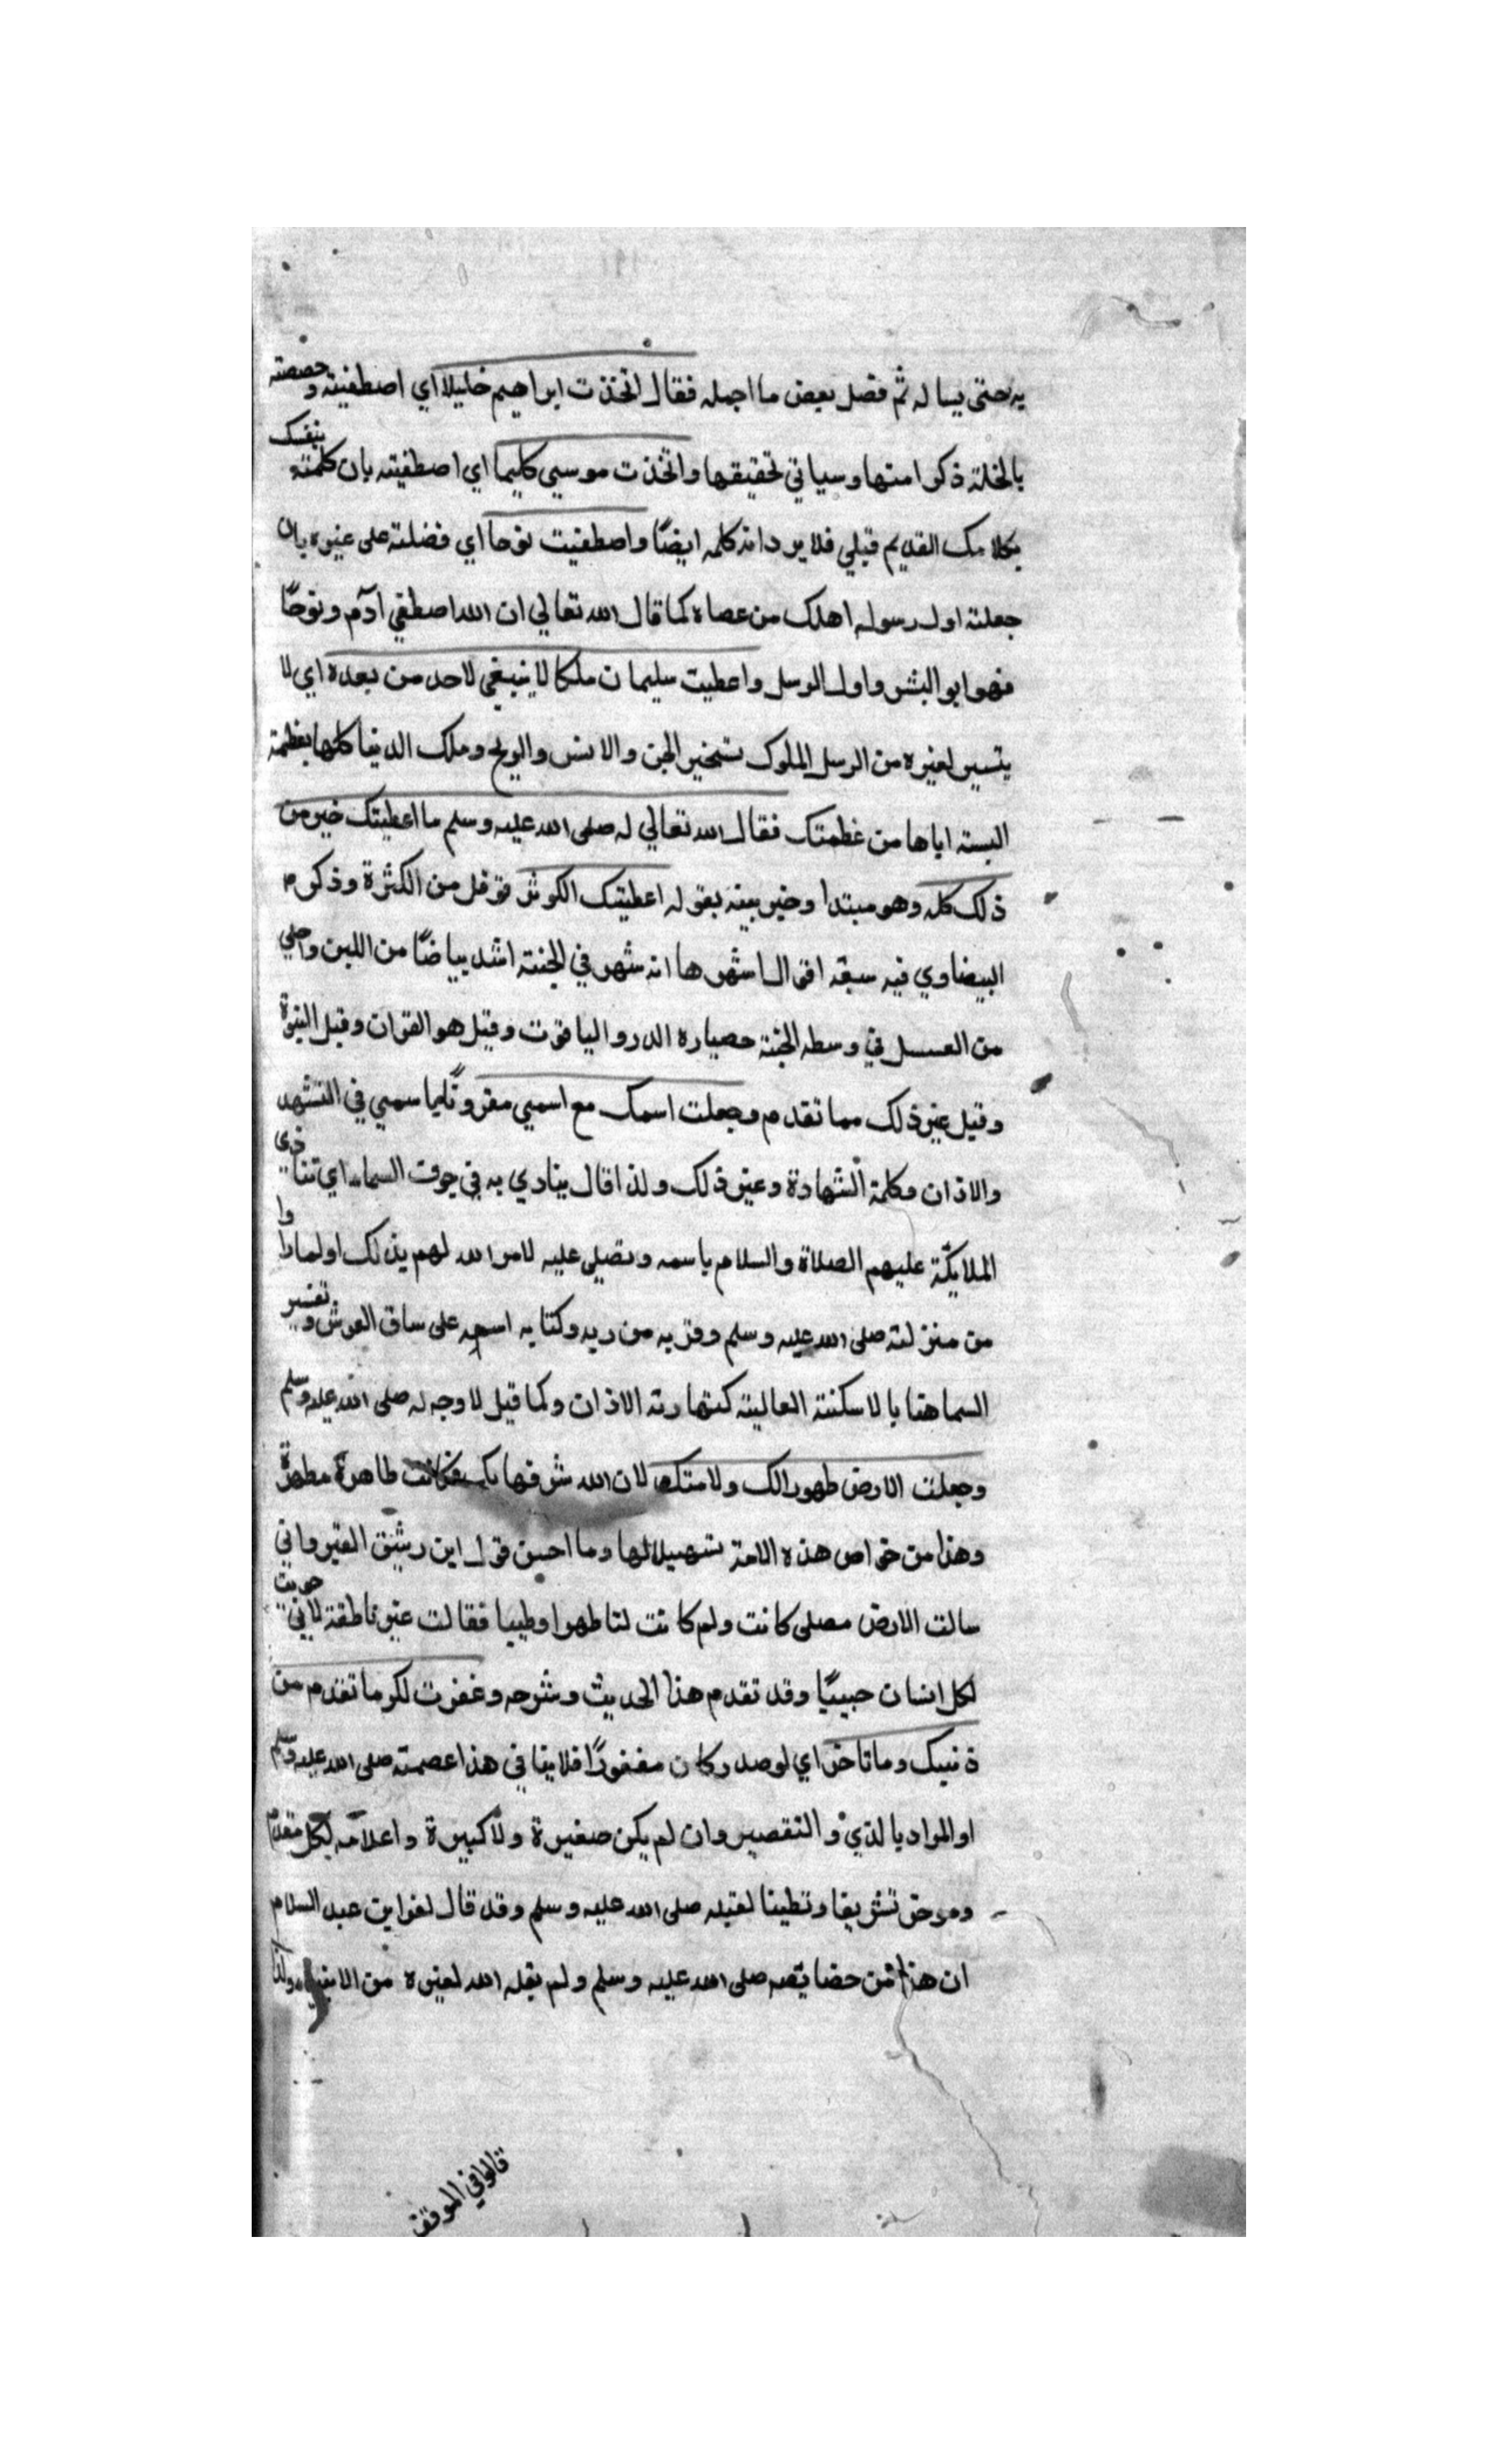 به حتى يساله ثم فصل بعض ما اجمله فقال اتخذت ابراهيم خليلا اي اصطفيته وخصصته
بالخلة ذكرا منها وسياتي تحقيقها واتخذت موسي كليما اي اصطفيته بان كلمته بنفسك
بكلامك القديم قبلي فلا يرد انه كلمه ايضًا واصطفيت نوحا اي فضلته على غيره بان
جعلته اول رسول اهلك من عصاه كما قال الله تعالي ان الله اصطفي آدم ونوحًا
فهو ابو البشر واول الرسل واعطيت سليمان ملكا لا ينبغي لاحد من بعده اي لا
يتسير لغيره من الرسل الملوك تسخير الجن والانس والريح وملك الدنيا كلها بعظمة
البسته اياها من عظمتك فقال الله تعالي له صلى الله عليه وسلم ما اعطيتك خير من
ذلك كله وهو مبتدا وخبر بينه بقوله اعطيتك الكوثر فوعل من الكثرة وذكر م
البيضاوي فيه سبعة اقوال اشهرها انه نهر في الجنة اشد بياضًا من اللبن واحلي
من العسل في وسط الجنة حصباره الدر والياقوت وقيل هو القران وقيل النبوة
وقيل غير ذلك مما تقدم وجعلت اسمك مع اسمي مقرونًا باسمي في التشهد
والاذان وكلمة الشهادة وغير ذلك ولذا قال ينادي به في جوف السماء اي تنادي
الملايكة عليهم الصلاة والسلام باسمه وتصلي عليه لامر الله لهم بذلك او لما راوا
من منزلته صلى الله عليه وسلم وقربه من ربه وكتابه اسمه على ساق العرش وتفسير
السما هنا بالاسكنة العالية كمنارته الاذان وكما قيل لا وجه له صلى الله عليه وسلم
وجعلت الارض طهورا لك ولامتك لان الله شرفها بك فكانت طاهرة مطهرة
وهذا من خواص هذه الامة تسهيلا لها وما احسن قول ابن رشيق القيرواني
سالت الارض مصلى كانت ولم كانت لنا طهرا وطيبا فقالت غير ناطقة لاني حويت
لكل انسان حبيبًا وقد تقدم هذا الحديث وشرحه وغفرت لك ما تقدم من
ذنبك وما تاخر اي لو صدر كان مغفورًا فلا ينا في هذا عصمته صلى الله عليه وسلم
او المراد بالذي و التقصير وان لم يكن صغيرة ولا كبيرة واعلامه لكل مقدم
وموخر تشريفا وتطينا لقبله صلى الله عليه وسلم وقد قال لعز ابن عبد السلام
ان هذا من خصايصه صلى الله عليه وسلم ولم يقله الله لغيره من الانبياء ولذا
قالوا في الموقف